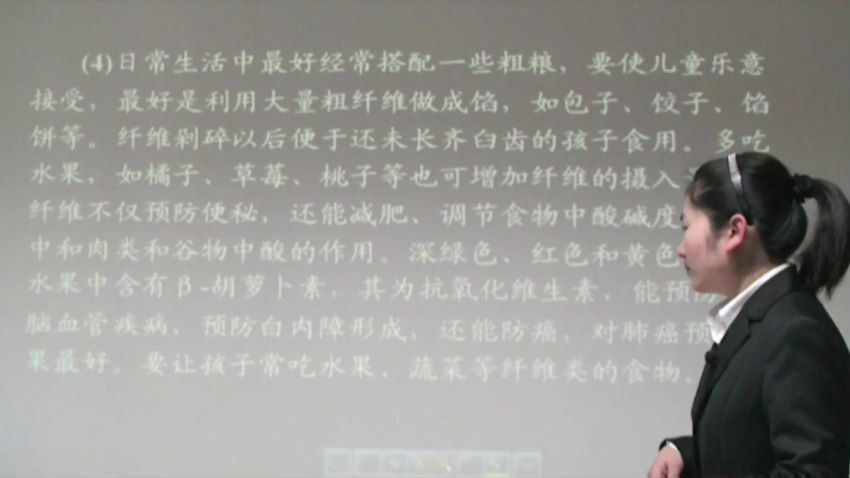 (4)日常生活中最好经常搭配一些粗粮，要使儿童乐意
接受，最好是利用大量粗纤维做成馅，如包子、饺子、馅
饼等。纤维剁碎以后便于还未长齐臼齿的孩子食用。多吃
水果，如橘子、草莓、桃子等也可增加纤维的摄入
纤维不仅预防便秘，还能减肥、调节食物中酸碱度
中和肉类和谷物中酸的作用。深绿色、红色和黄色
水果中含有β-胡萝卜素，其为抗氧化维生素，能预防
脑血管疾病，预防白内障形成，还能防癌，对肺癌预
果最好。要让孩子常吃水果，蔬菜等纤维类的食物。